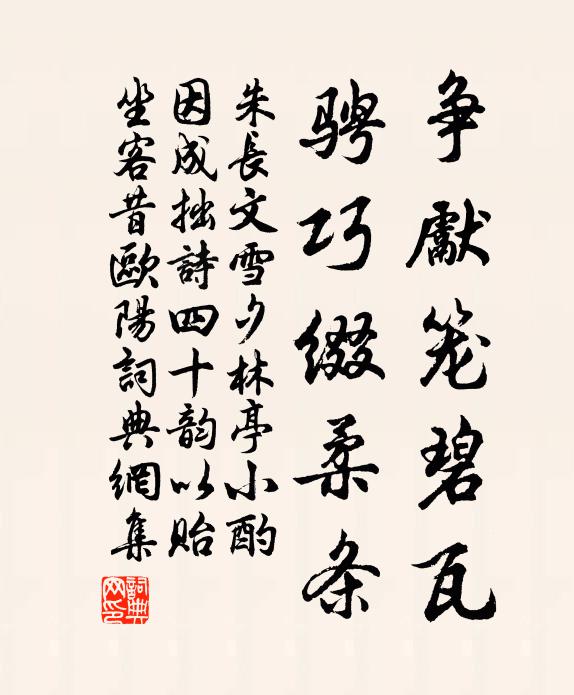 争獻笼碧瓦
骋巧缀柔条
朱長文雪夕林亭小酌
因成拙詩四十韵以贻
坐客昔歐陽詞典網集
詞典网印